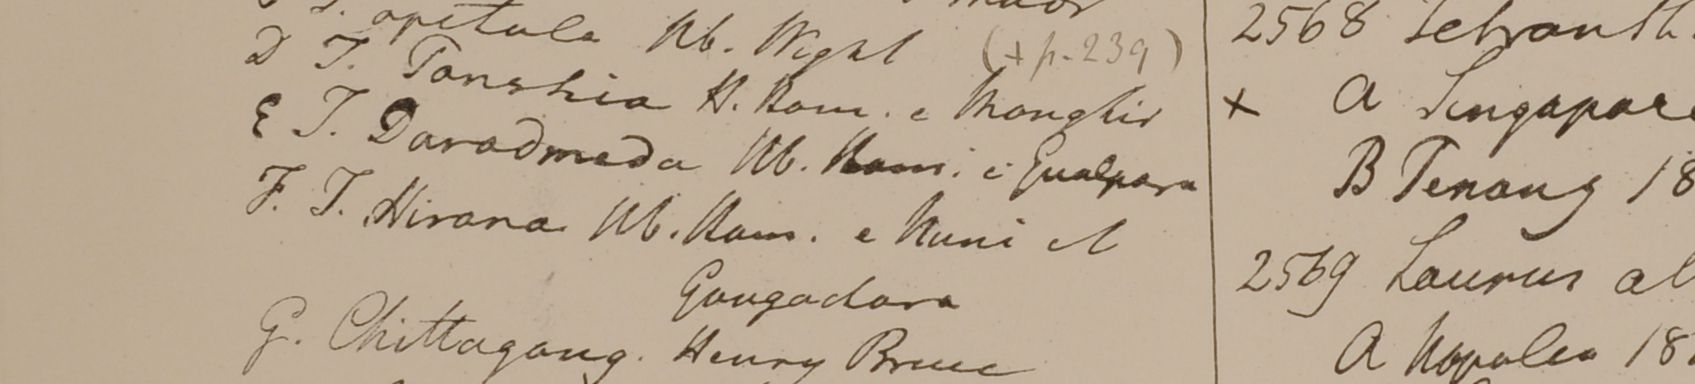 T. apetala Hb. Wight (+ p. 239)
D T. Tonshia H. Ham. e Monghir
E T. Daradmeda Hb. Ham. e Gualpara
F. T. Hirana Hb. Ham. e Nuni et
Gougadara
G. Chittagong. Henry Bruce
2568 Tetranth
+ A Singapore
B Penang 18
2569 Laurus al
A Napalia 18